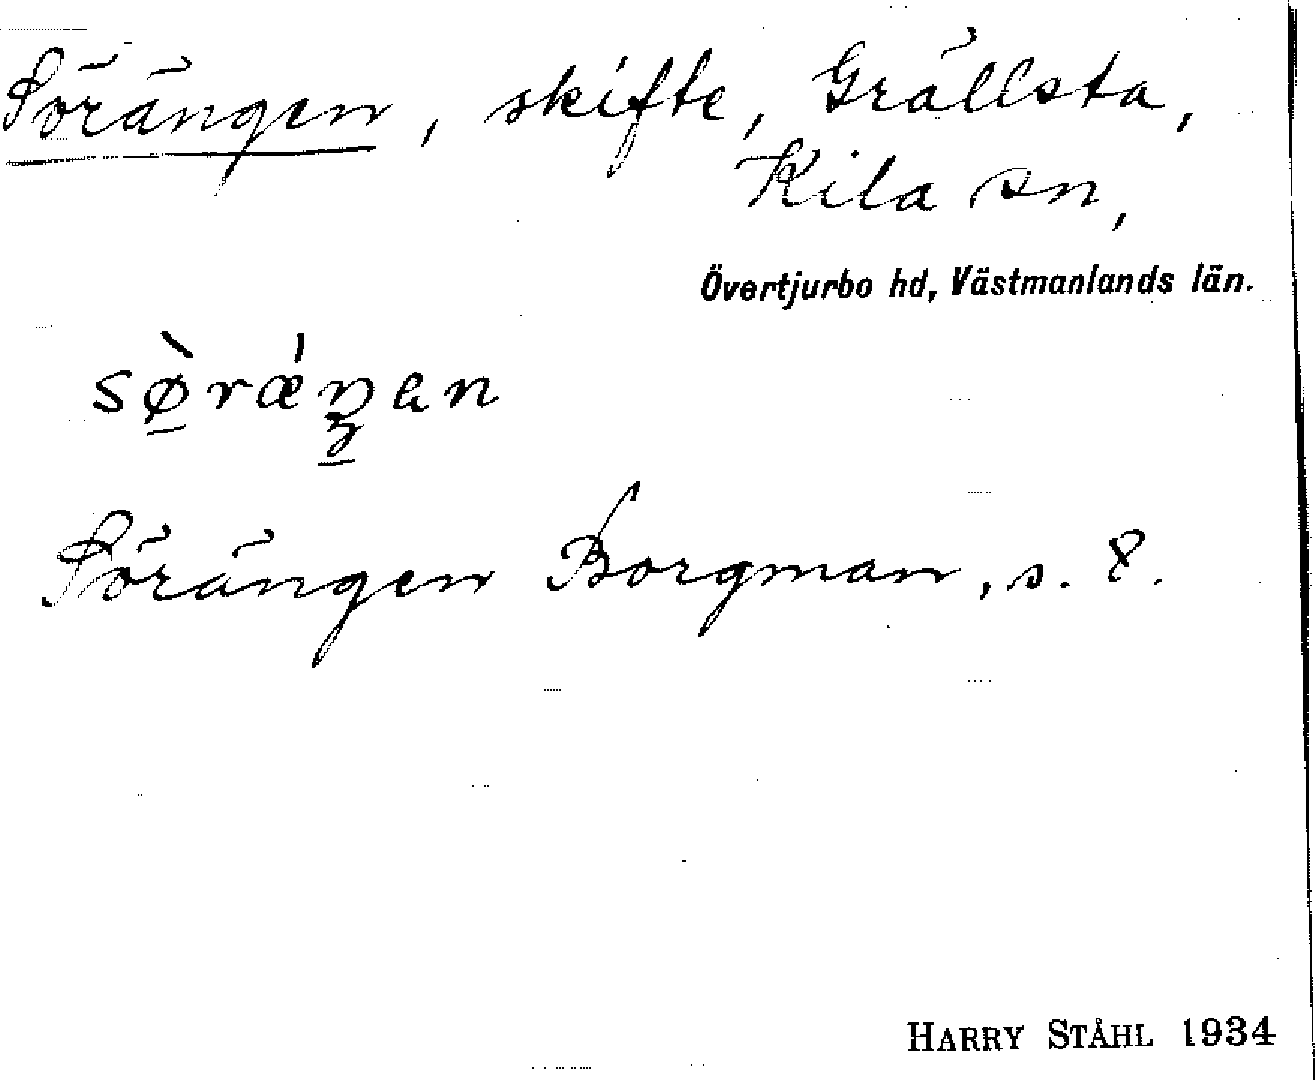 Sörängen, skifte, Grällsta,
Kila sn,
Övertjurbo hd, Västmanlands län.
sø̀rǽŋan
Sörängen Borgman, s. 8.
HARRY STÅHL 1934